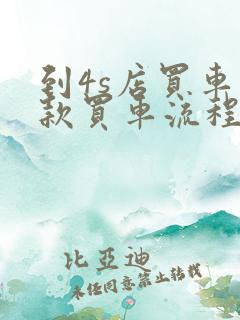 到4s店買車
款買車流程
比亞迪
未经同意禁止转载